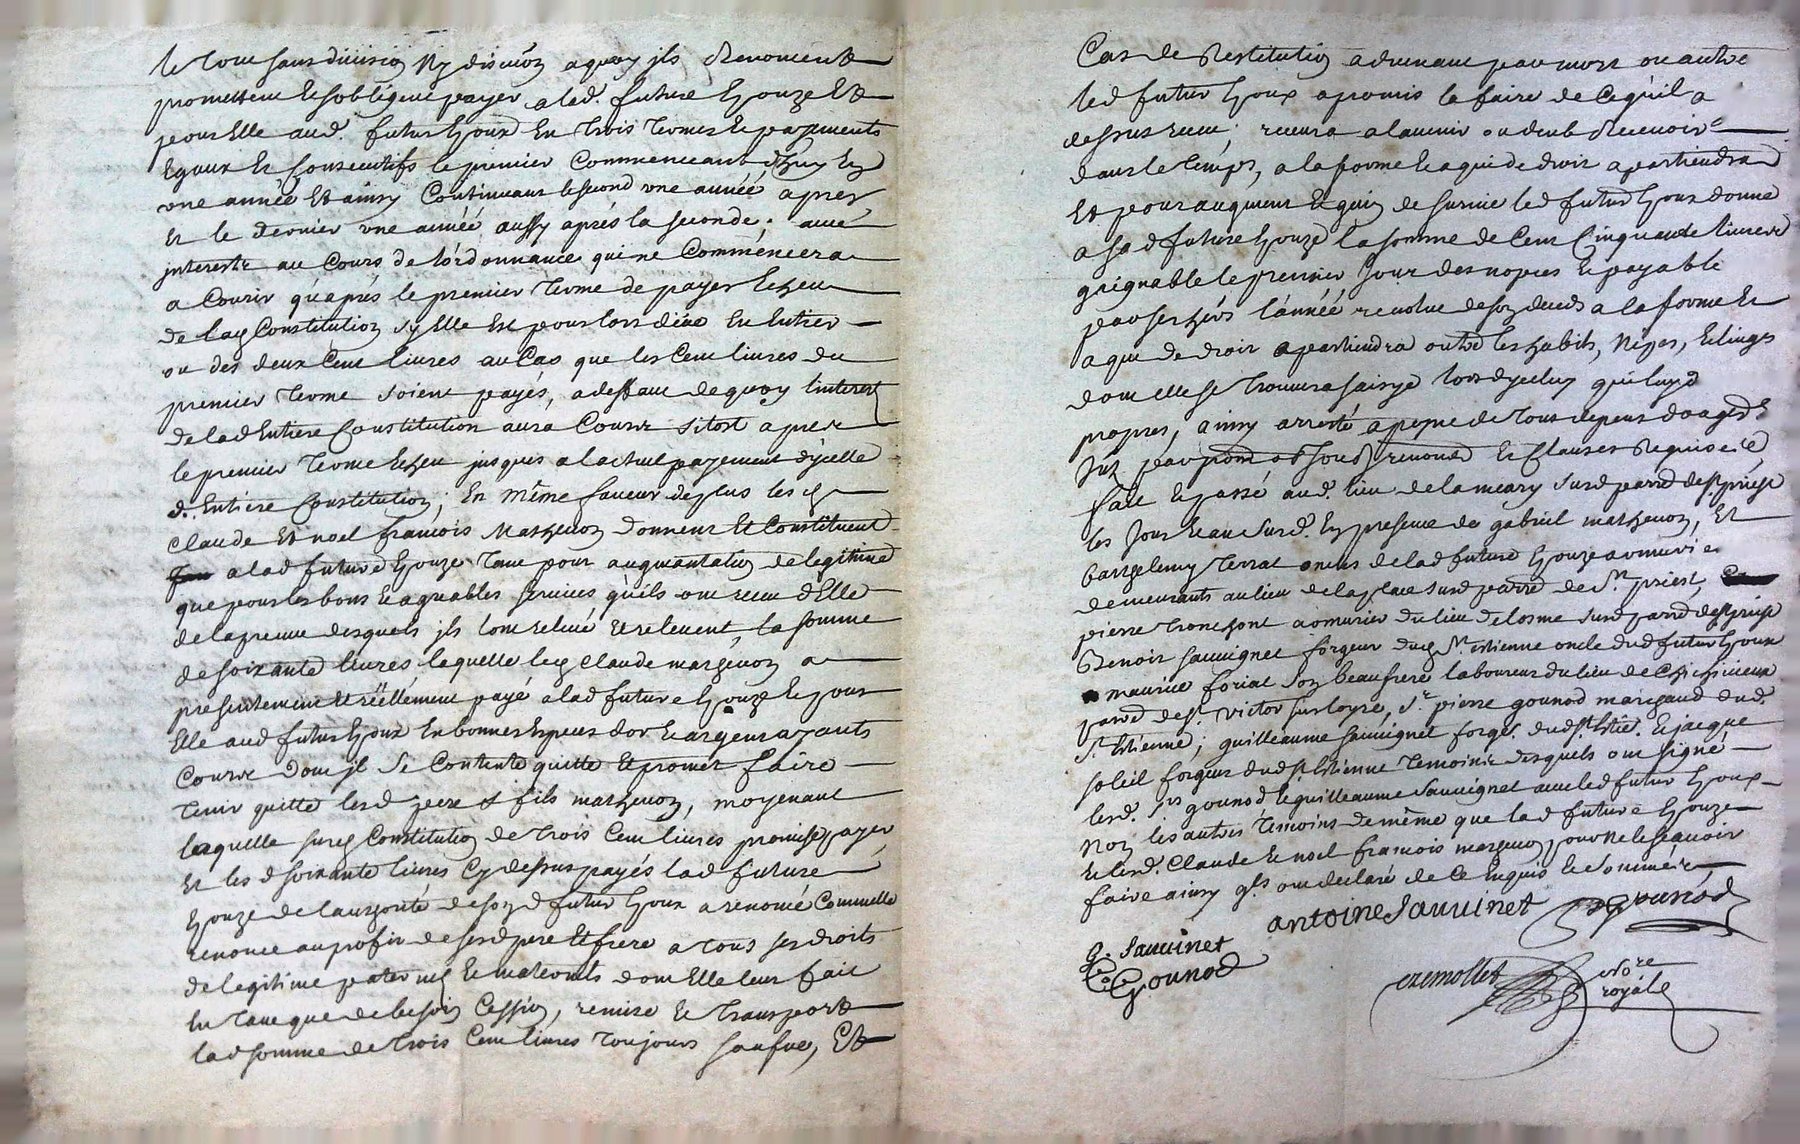 le tout sans division ny discution a quoy jls Renoncent
promettent et sobligent payer a lad. future Epouze Et
pour Elle aud. futur Epoux En trois termes et payements
Egaux et Consecutifs le premier Commenceant d'huy En
une année Et ainsy Continuant le second une année apres
Et le dernier une année aussy aprés la seconde; avec
jnterests au Cours de lórdonnance qui ne Commencera
a Courir qu'aprés le premier terme de payer Echeu
de lad Constitution sy Elle Est pour lors düe En Entier
ou des deux Cent livres au Cas que les Cent livres du
premier terme soient payés, a deffaut de quoy l'interest
de lad Entiere Constitution aura Cours sitost apres
le premier terme Echeu jusques a lactuel payement d'jcelle
d. Entiere Constitution; En même faveur de plus les d
Claude Et noel francois Mathevon donnent Et Constituent
a lad future Epouze tant pour augmentation de legitime
que pour les bons et agreables services qu'ils ont receu d'Elle
de la preuve desquels jls lont relevé et relevent, la somme
de soixante livres laquelle led Claude mathevon a
presentement et réellement payé a lad future Epouze et pour
Elle aud futur Epoux En bonnes Especes d'or et argent ayants
Cours dont jl se Contente quitte Et promet faire
tenir quitte lesd pere & fils mathevon, moyenant
laquelle susd Constitution de trois Cent livres promise payer
Et lesd soixante livres Cy dessus payés lad future
Epouze de lauthorité de sond futur Epoux a renoncé Comme Elle
renonce au profit de sesd pere Et frere a tous ses droits
de legitime paternels Et maternels dont Elle leur fait
En tant que de besoin Cession, remise Et transport
lad somme de trois Cent livres toujours sauve, Et
Cas de Restitution advenant par mort ou autre
led futur Epoux a promis la faire de Ce qu'il a
dessus receu; recevra a lavenir ou deub Recevoir
dans le temps, a la forme et a qui de droit apartiendra
Et pour augment Et gain de survie led futur Epoux donne
a sad future Epouze la somme de Cent Cinquante livres
gaignable le premier jour des nopces Et payable
par ses hérs l'année revolue de son deceds a la forme Et
a qui de droit apartiendra outre les habits, Nipes, Et linges
dont elle se trouvera saisye lors d'jceluy qui luy
propres, ainsy arresté a peyne de tous depens domages
Jnts par promt obson renond Et Clauses Requises
fait Et passé aud. lieu de la meary susd parre de st priest
les Jour Et an susd. En presence de gabriel mathevon, Et
barthelemy Terrat oncles de lad future Epouze armuriers
demeurants au lieu de la place susd parre de St priest,
pierre tronchont armurier du lieu de losme susd parre de st priest
Benoist sauvignet forgeur dud St Estienne oncle dud futur Epoux
maurice foriat son beaufrere laboureur du lieu de Chichivieux
parre de st victor sur loyre, sr pierre gounod marchand dud.
st Estienne; guilleaume sauvignet forgr. dud st Este. Et jacque
soleil forgeur dud st Estienne temoins desquels ont signé
lesd. srs gounod Et guilleaume sauvignet avec led futur Epoux
Non les autres temoins de même que lad future Epouze
Et lesd. Claude Et noel francois mathevon, pour Ne le scavoir
faire ainsy qls ont declaré de Ce Enquis Et sommés
antoine Sauvinet
Gounod
G. Sauvinet
Gounod
cremollet
Nore
royal